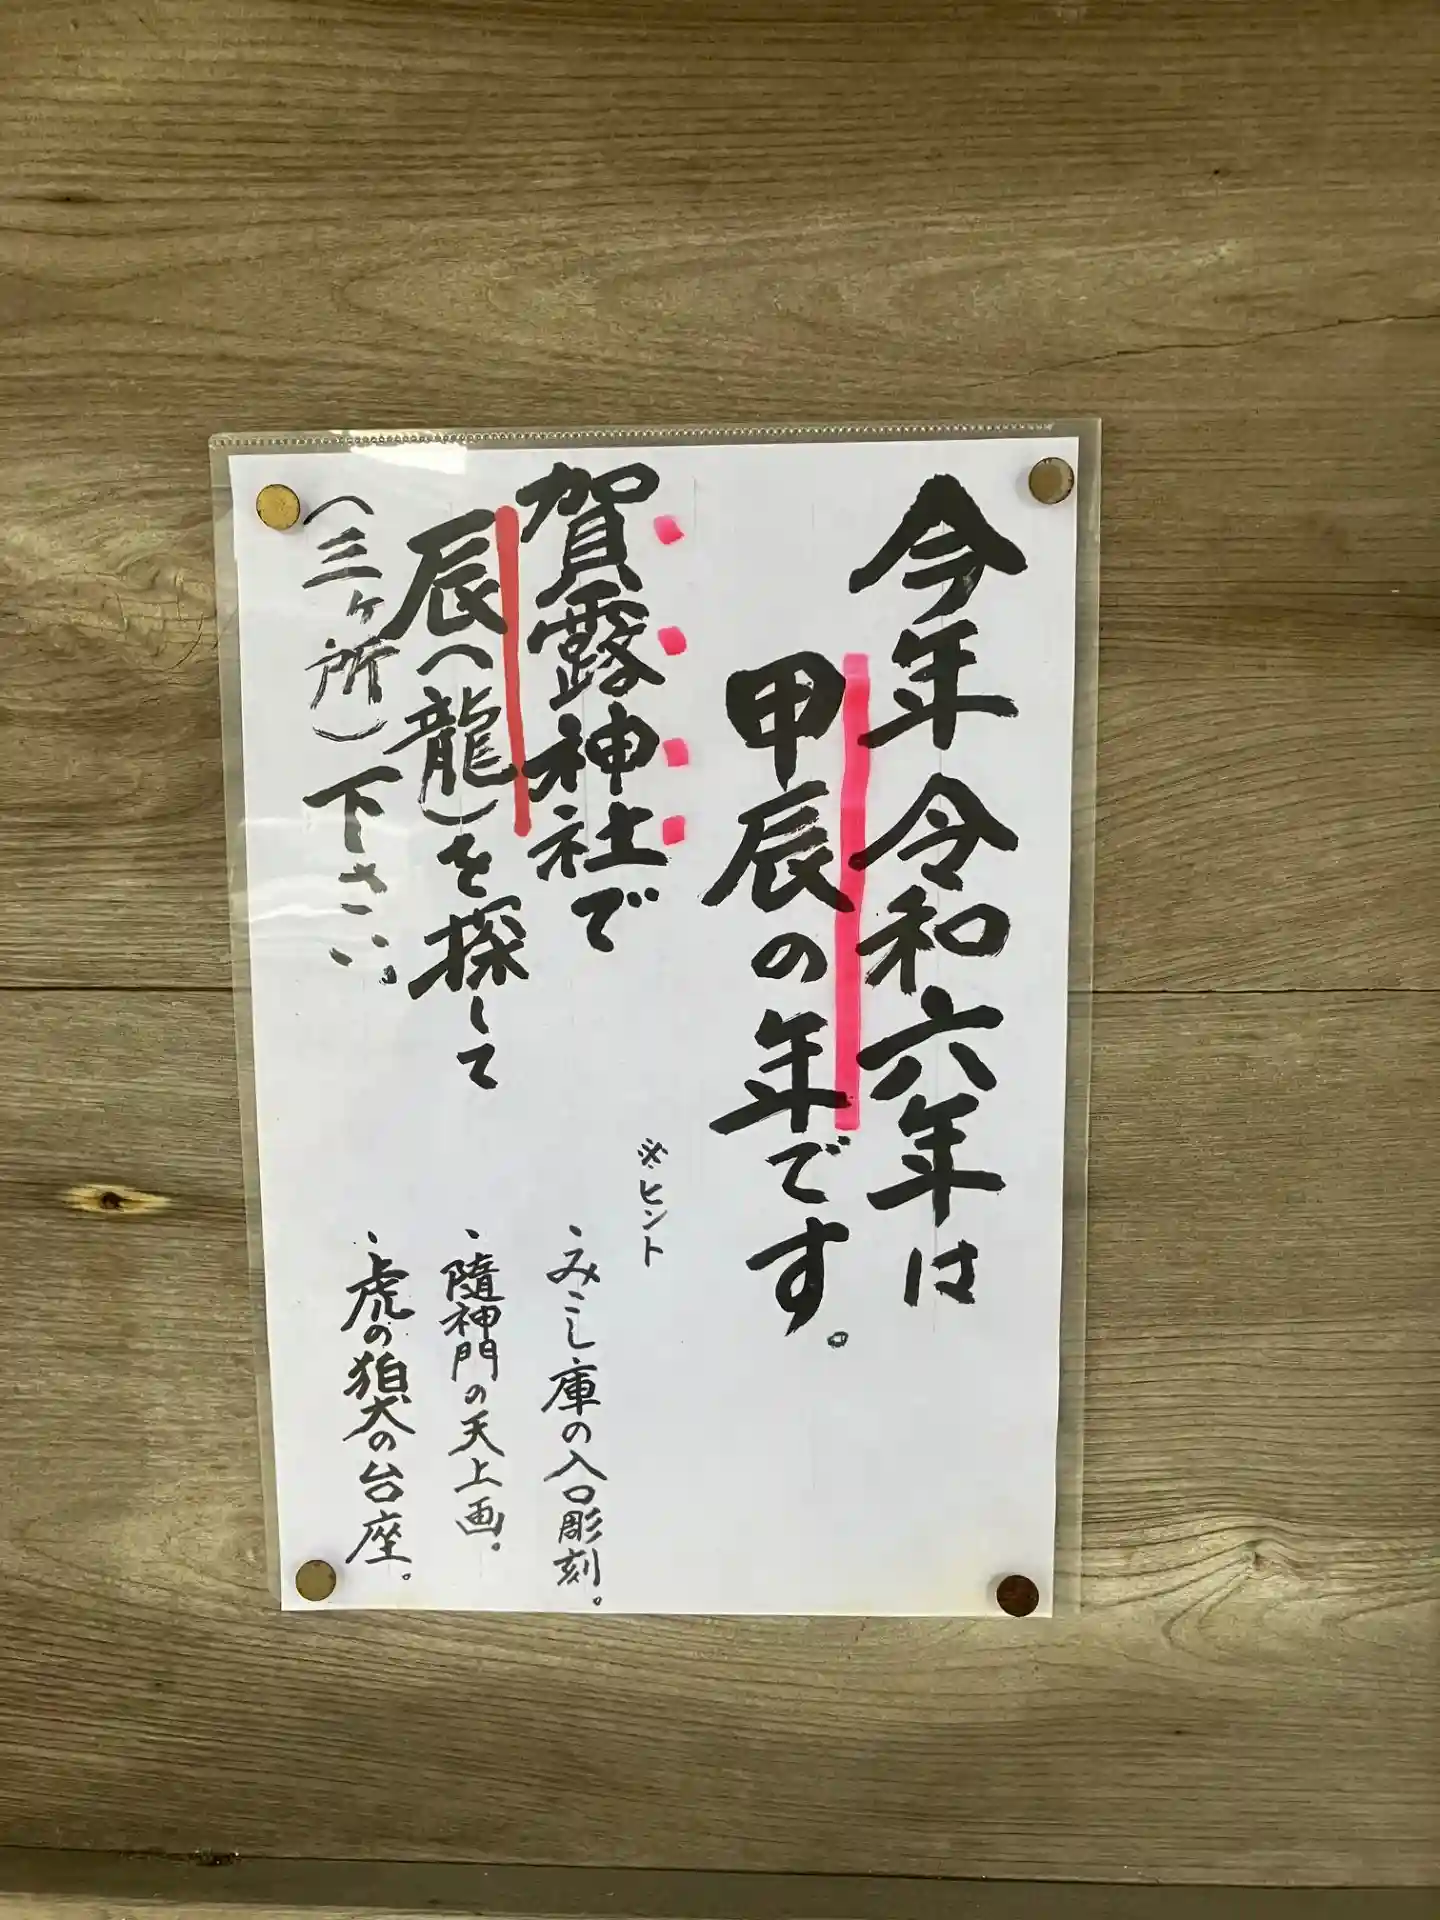 今年令和六年は
甲辰の年です。
賀露神社で
辰(龍)を探して
(三ヶ所)下さい
※ヒント
・みこし庫の入口彫刻。
・隨神門の天上画。
・虎の狛犬の台座。